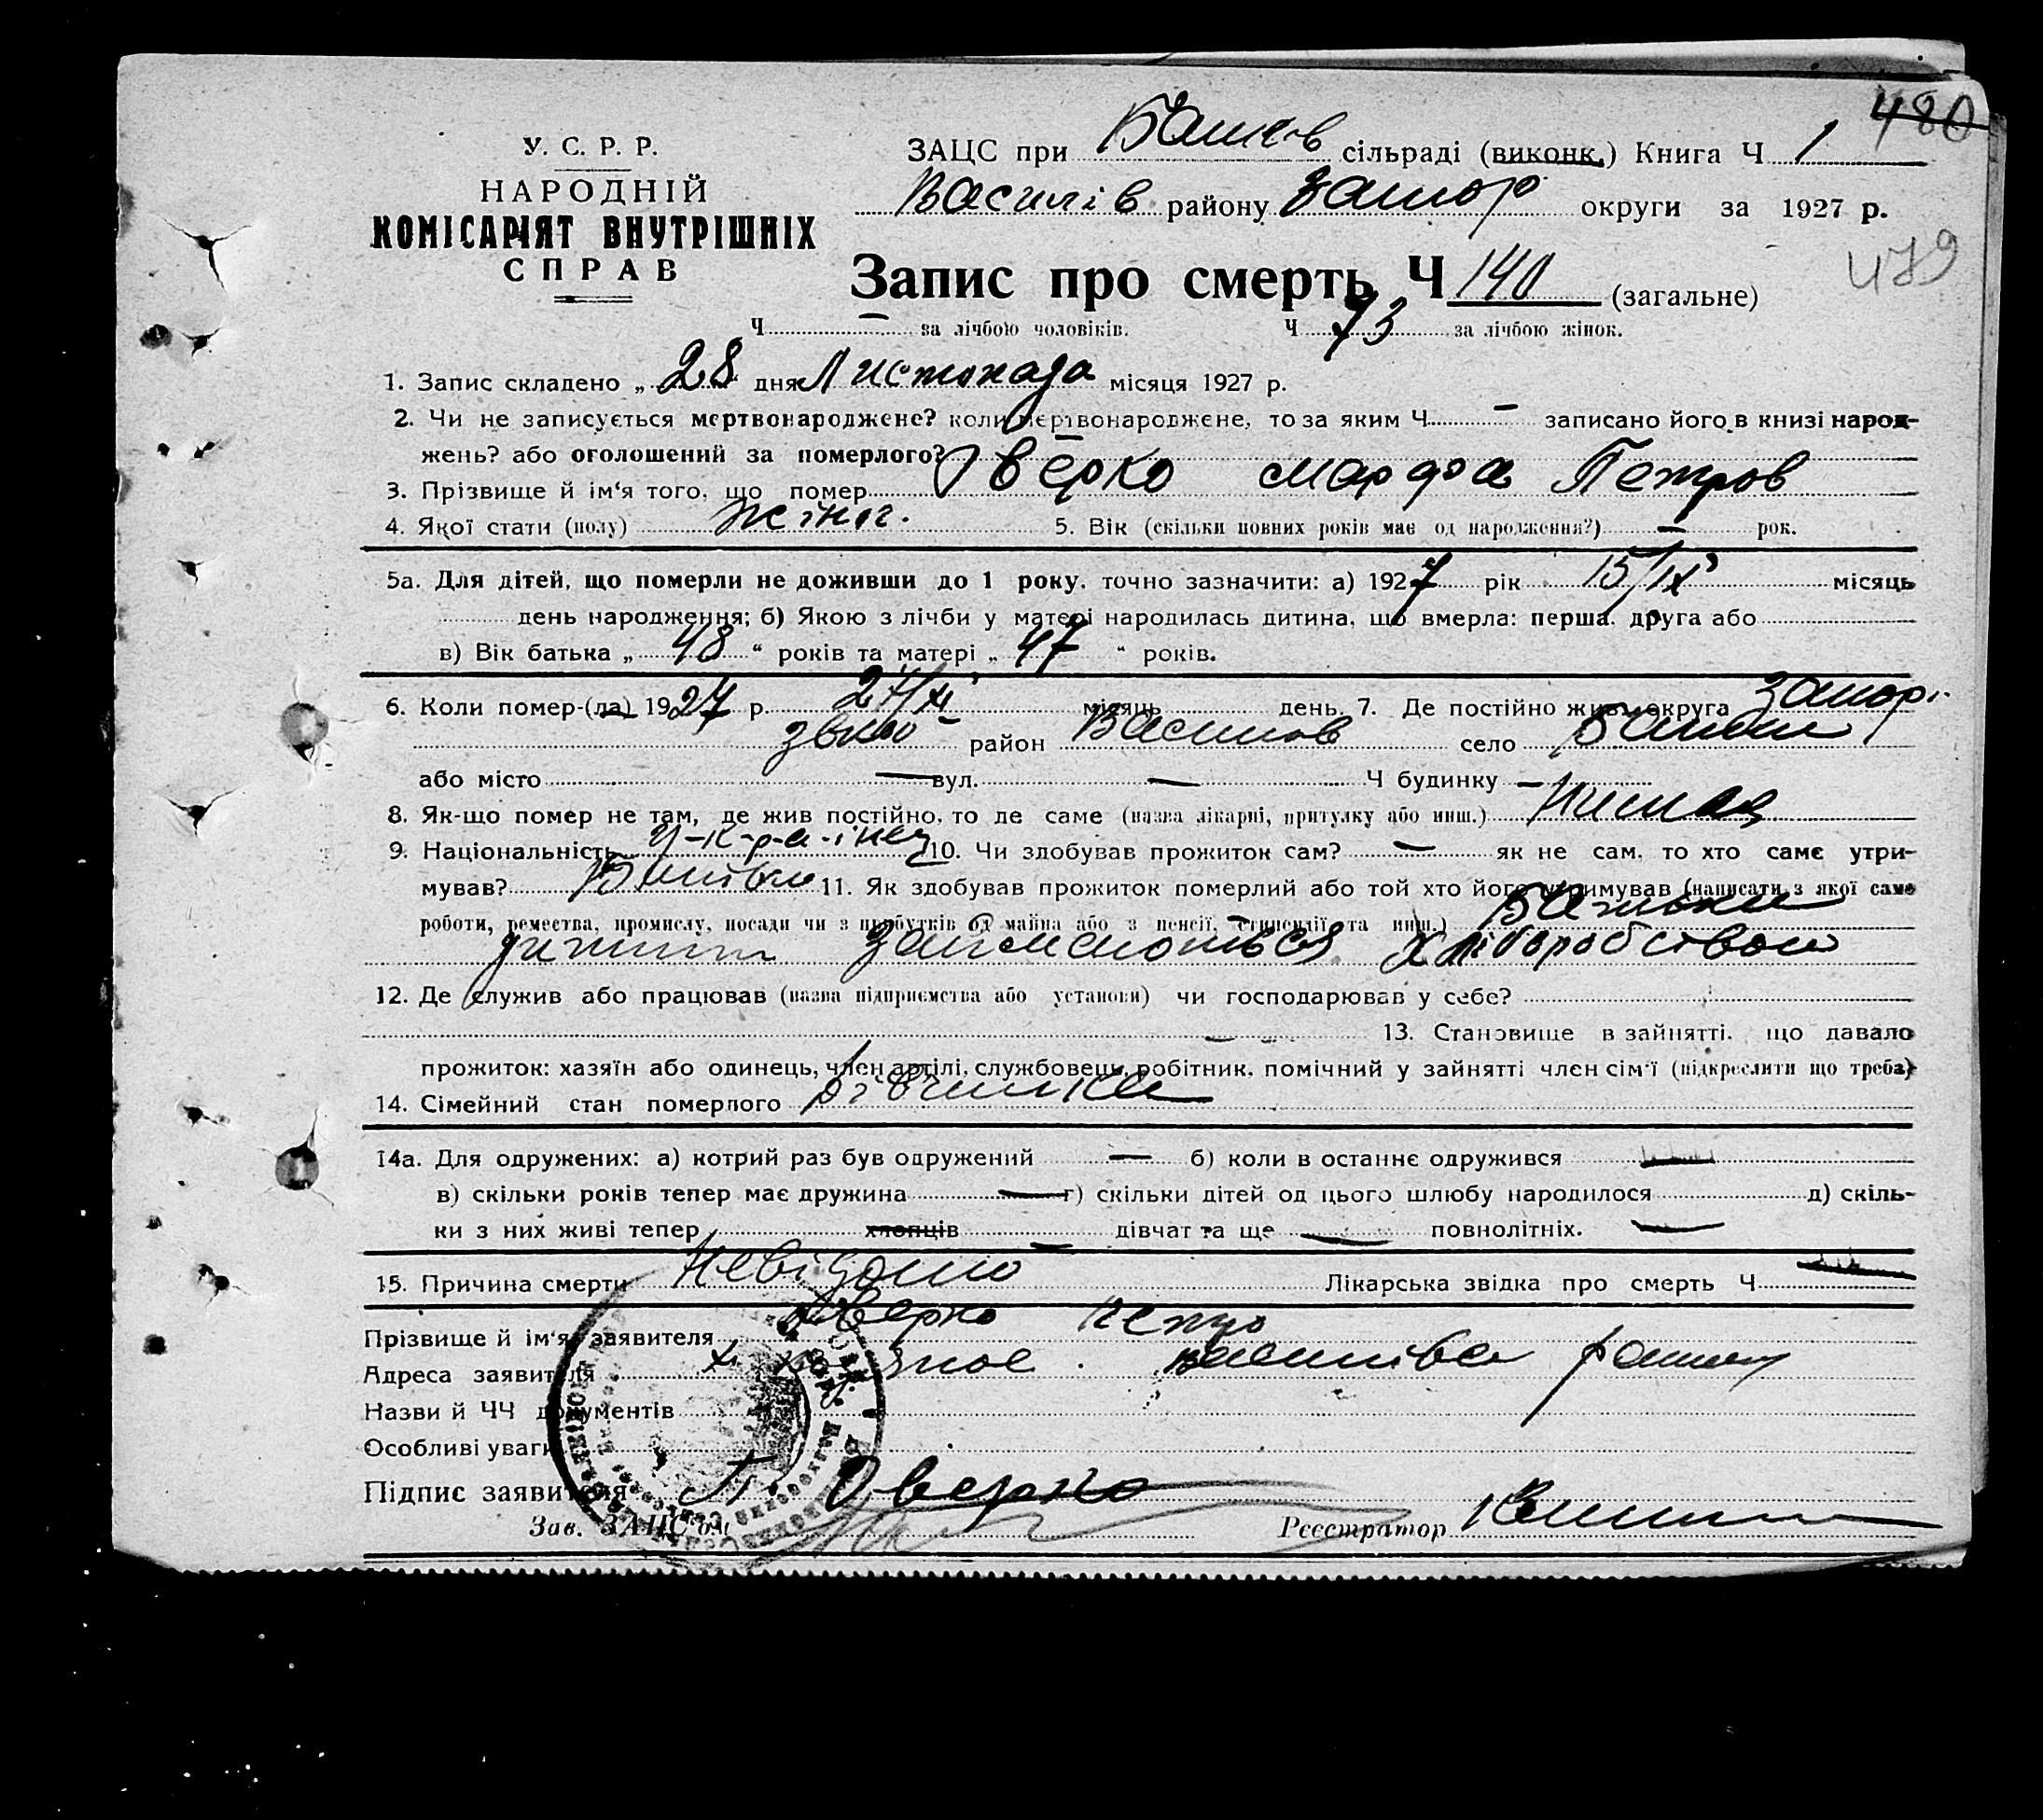 480
У. С. Р. Р.
НАРОДНІЙ
КОМІСАРІЯТ ВНУТРІШНІХ
СПРАВ
ЗАЦС при сільраді (виконк.) Книга Ч 1
Василів району Запор округи за 1927 р.
479
Запис про смерть Ч 140 (загальне)
Ч — за лічбою чоловіків. Ч 73 за лічбою жінок.
1. Запис складено „ 28 “ дня Листопада місяця 1927 р.
2. Чи не записується мертвонароджене? коли мертвонароджене, то за яким Ч — записано його в книзі народ-
жень? або оголошений за померлого? —
3. Прізвище й ім'я того, що помер Оверко Марфа Петров
4. Якої стати (полу) жіноч. 5. Вік (скільки повних років має од народження?) — рок.
5а. Для дітей, що померли не доживши до 1 року, точно зазначити: а) 1927 рік 15/IX місяць
день народження; б) Якою з лічби у матері народилась дитина, що вмерла: перша, друга або
в) Вік батька „ 48 “ років та матері „ 47 “ років.
6. Коли помер-(ла) 1927 р. 27/XI місяць день. 7. Де постійно жив: округа Запорі
район Василів село
або місто — вул. — Ч будинку —
8. Як-що помер не там, де жив постійно, то де саме (назва лікарні, притулку або инш.)
9. Національність у-к-р-а-інец 10. Чи здобував прожиток сам? — як не сам, то хто саме утри-
мував? Батьки 11. Як здобував прожиток померлий або той хто його утримував (написати з якої саме
роботи, ремества, промислу, посади чи з прибутків од майна або з пенсії, стипендії та инш.) Батьки
займаються хліборобством
12. Де служив або працював (назва підприємства або установи) чи господарював у себе?
— 13. Становище в зайнятті, що давало
прожиток: хазяїн або одинець, член артілі, службовець, робітник, помічний у зайнятті член сім'ї (підкреслити що треба)
14. Сімейний стан померлого дівчинка
14а. Для одружених: а) котрий раз був одружений — б) коли в останнє одружився —
в) скільки років тепер має дружина — г) скільки дітей од цього шлюбу народилося д) скіль-
ки з них живі тепер хлопців — дівчат та ще — повнолітніх. —
15. Причина смерти Невідомо Лікарська звідка про смерть Ч —
Прізвище й ім'я заявителя Оверко Петро
Адреса заявителя
Назви й ЧЧ документів
Особливі уваги
Підпис заявителя П. Оверко
Зав. ЗАЦС'ом Реєстратор